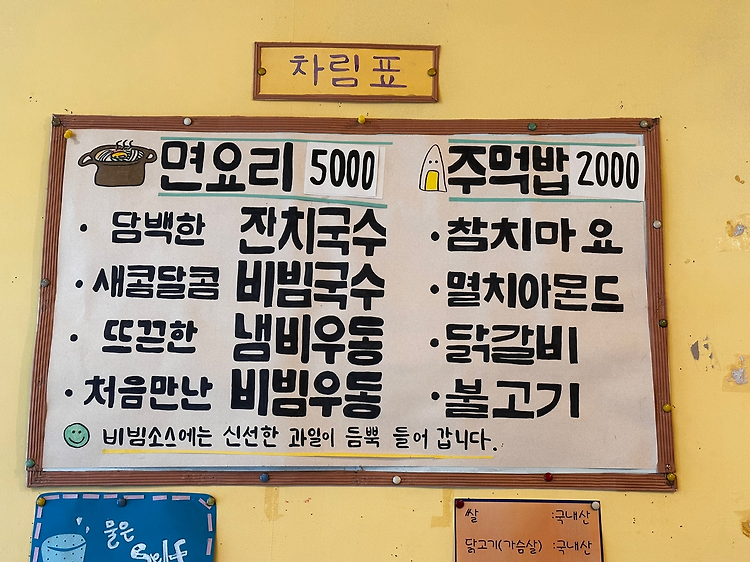 차림표
면요리 5000
· 담백한 잔치국수
· 새콤달콤 비빔국수
· 뜨끈한 냄비우동
· 처음만난 비빔우동
비빔소스에는 신선한 과일이 듬뿍 들어 갑니다.
주먹밥 2000
· 참치마요
· 멸치아몬드
· 닭갈비
· 불고기
물은
쌀 :국내산
닭고기(가슴살) :국내산